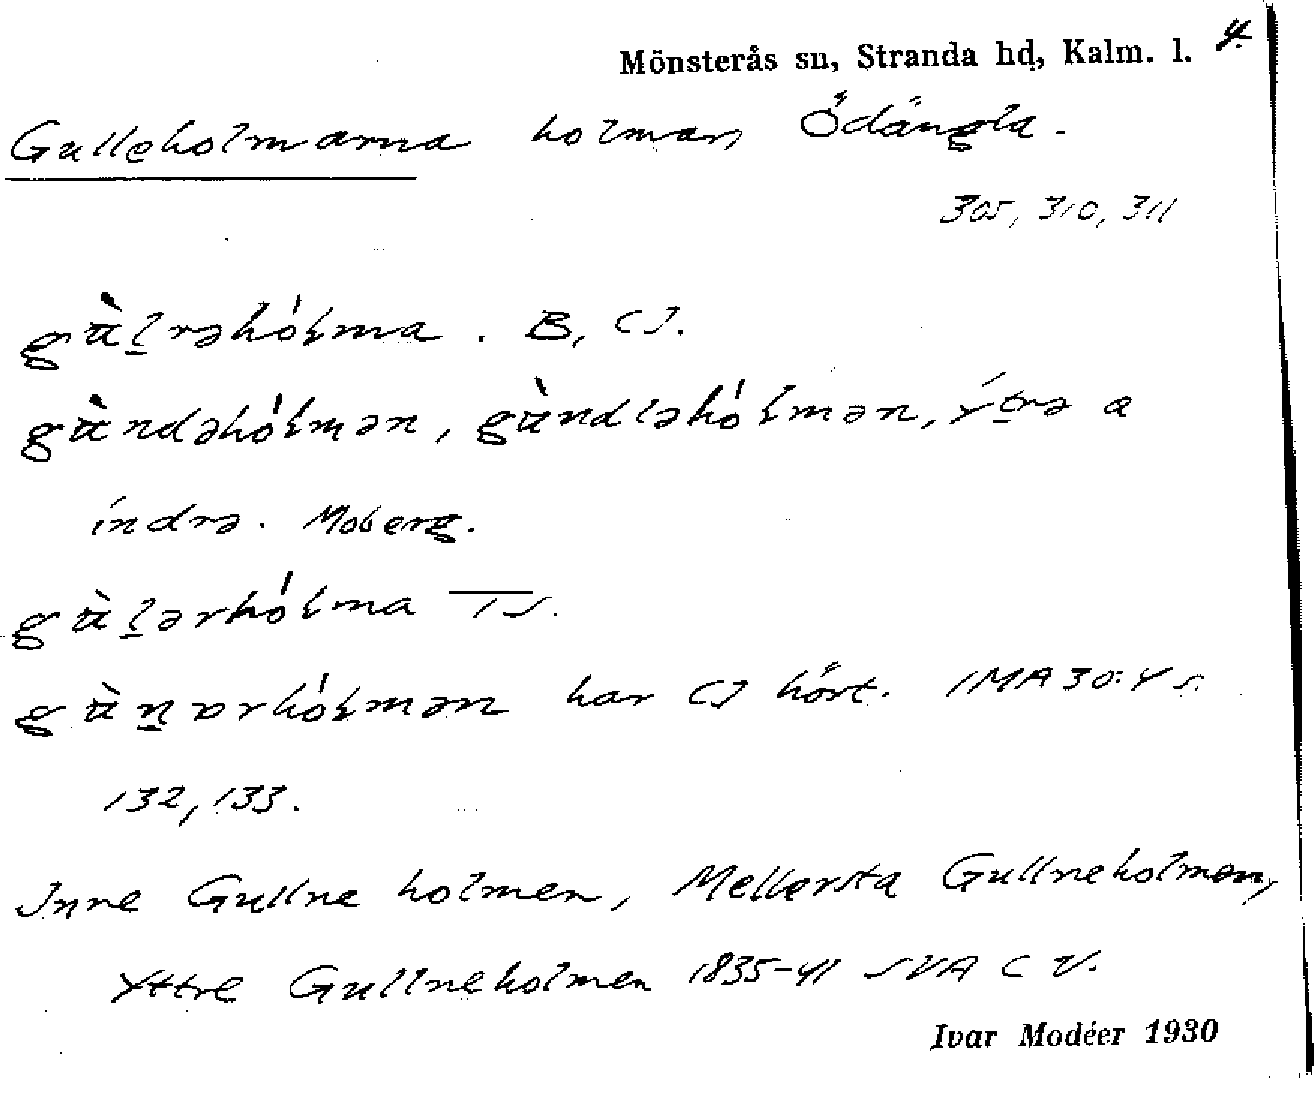 Mönsterås sn, Stranda hd, Kalm. l. 4.
Gulleholmarna holmar, Ödängla.
305, 310, 311
gù̈l̲rəhóƚma. B, CJ.
gù̈ndəhóƚmən, gù̈ndləhóƚmən, ýt̲rə a
índrə. Moberg.
gù̈l̲ərhóƚma TS.
gù̈n̲ərhóƚmən har CJ hört. IMA 30:4 s.
132, 133.
Inne Gullne holmen, Mellersta Gullneholmen,
Yttre Gullneholmen 1835-41 SVA C V.
Ivar Modéer 1930